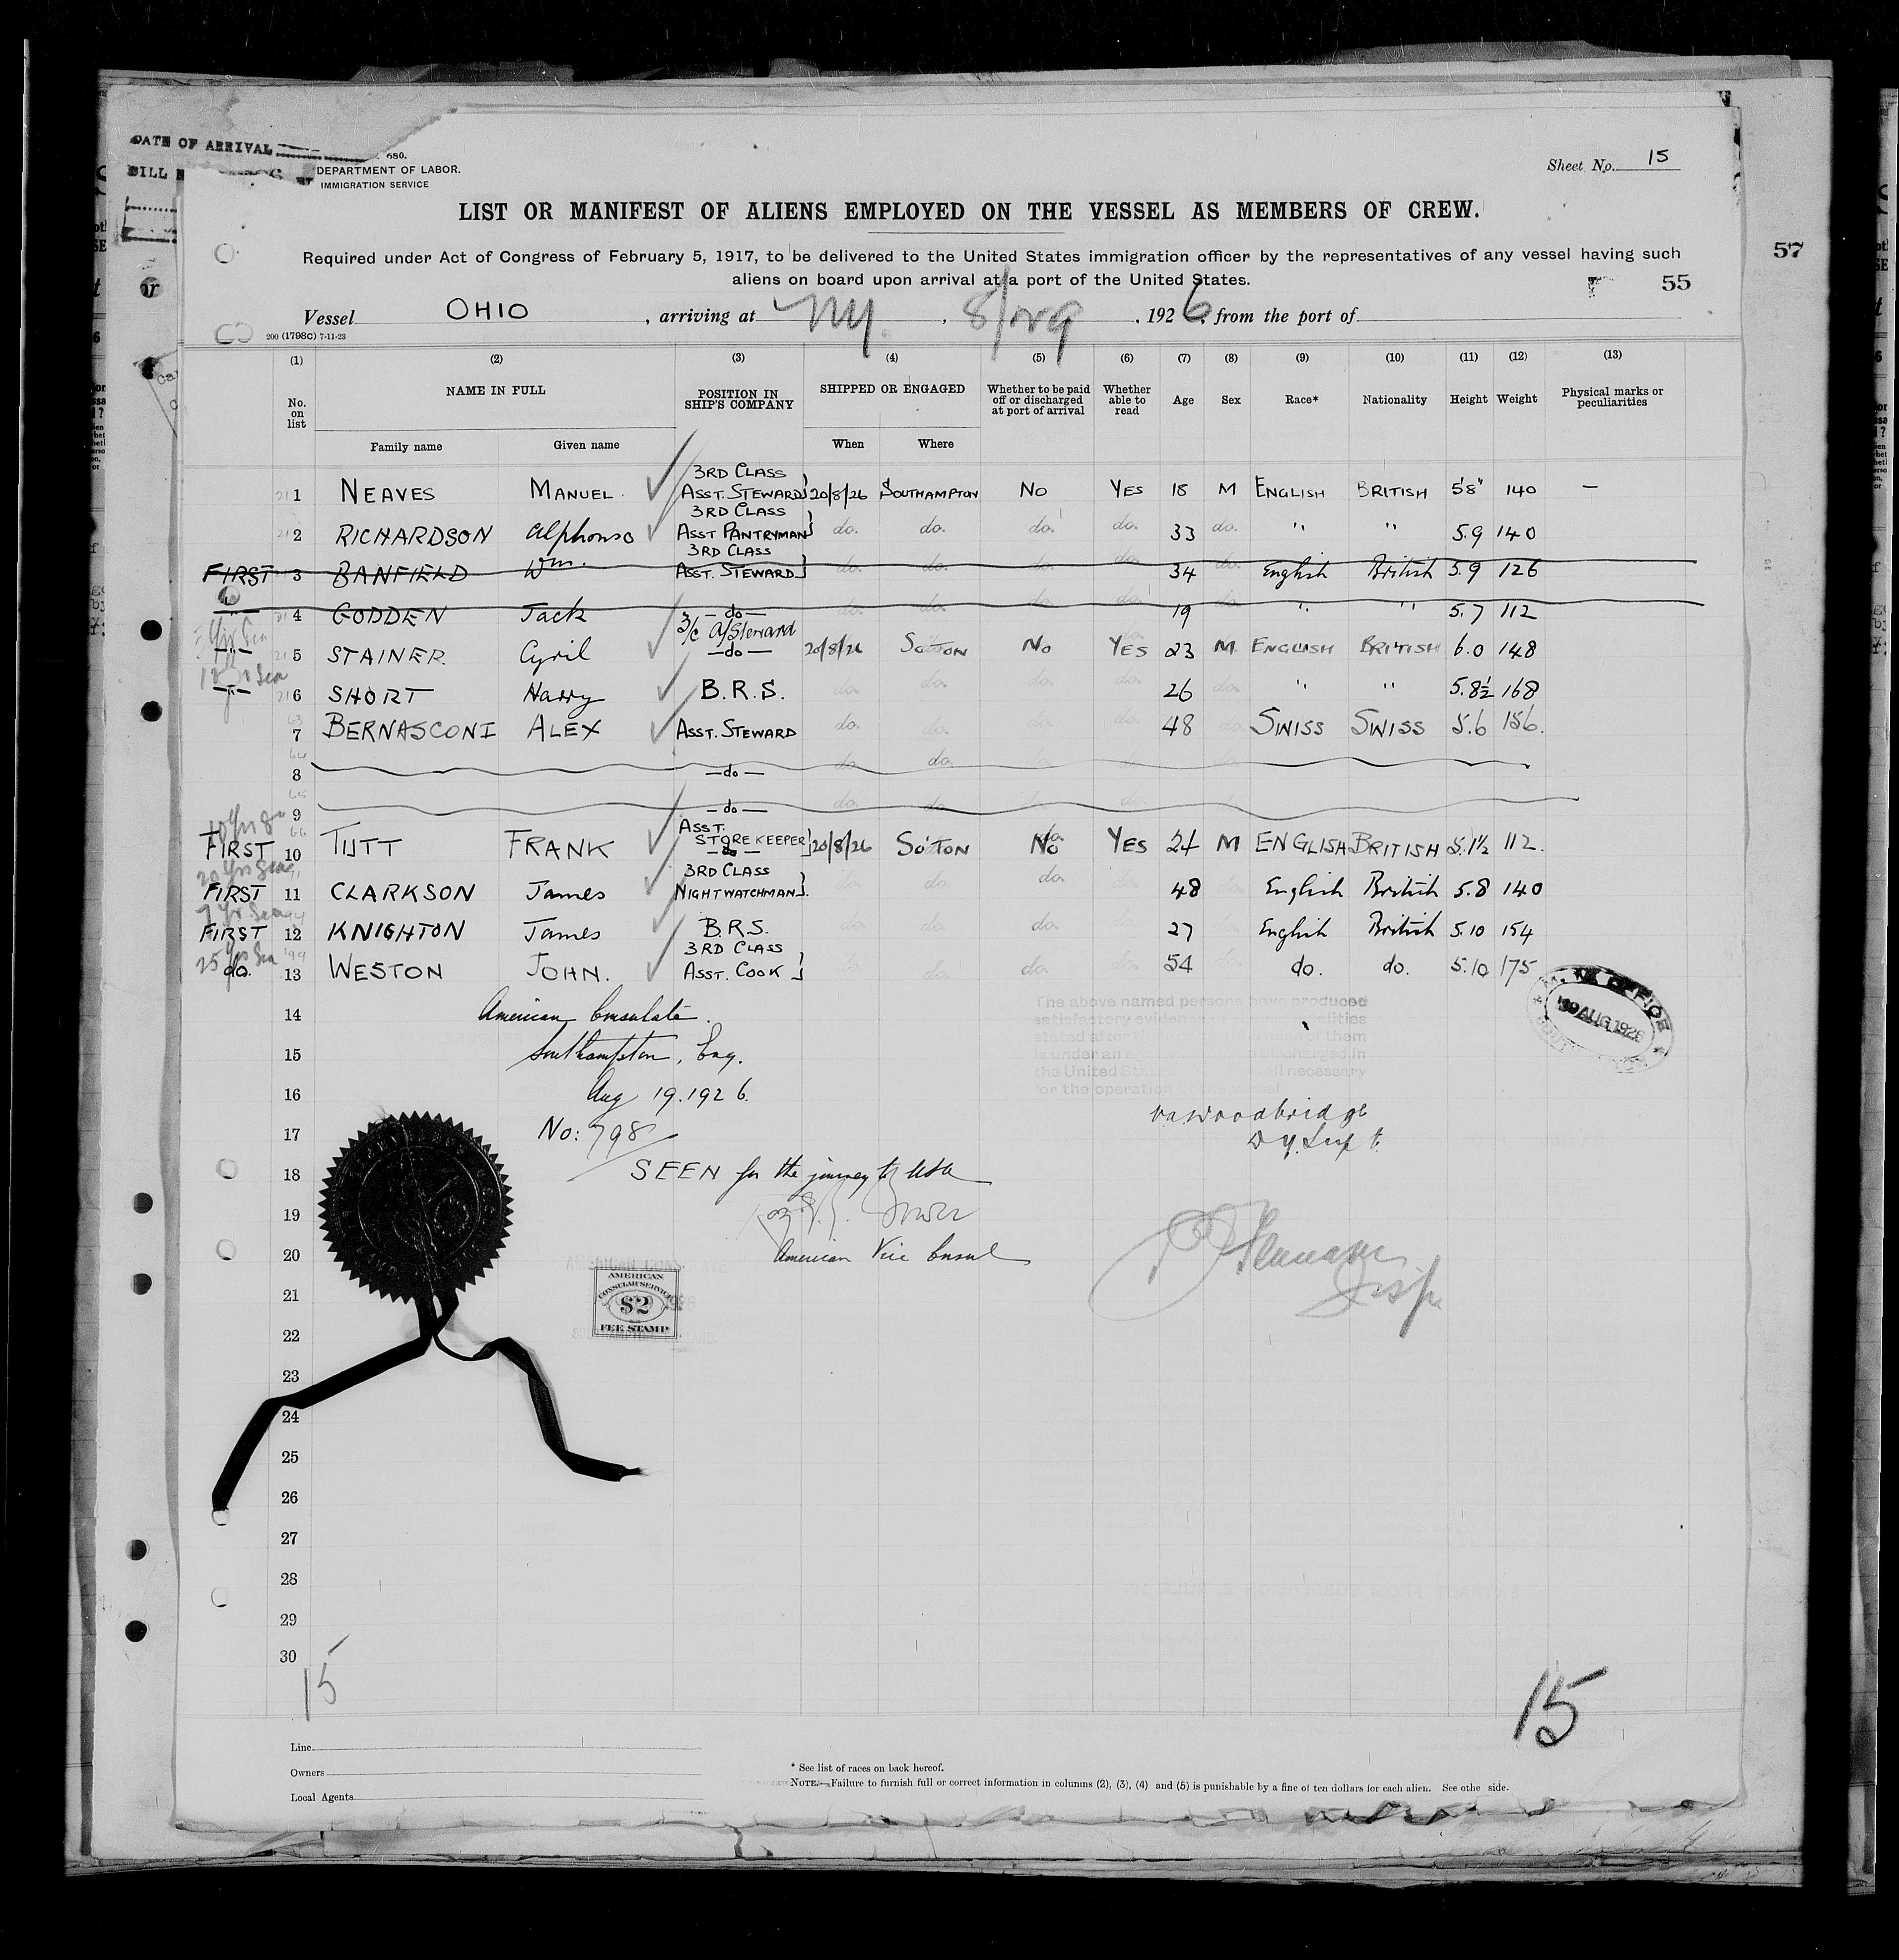 DATE OF ARRIVAL
680.
DEPARTMENT OF LABOR.
IMMIGRATION SERVICE
Sheet No. 15
LIST OR MANIFEST OF ALIENS EMPLOYED ON THE VESSEL AS MEMBERS OF CREW.
Required under Act of Congress of February 5, 1917, to be delivered to the United States immigration officer by the representatives of any vessel having such
aliens on board upon arrival at a port of the United States.
57
55
Vessel OHIO, arriving at NY, 192 6, from the port of
200 (1798C) 7-11-23
(1) (2) (3) (4) (5) (6) (7) (8) (9) (10) (11) (12) (13)
No. on list NAME IN FULL POSITION IN SHIP'S COMPANY SHIPPED OR ENGAGED Whether to be paid off or discharged at port of arrival Whether able to read Age Sex Race* Nationality Height Weight Physical marks or peculiarities
Family name Given name When Where
1 NEAVES MANUEL. 3RD CLASS ASST. STEWARD 20/8/26 SOUTHAMPTON NO YES 18 M ENGLISH BRITISH 5'8" 140 —
2 RICHARDSON Alphonso 3RD CLASS ASST PANTRYMAN do. do. do. do. 33 do. " " 5.9 140
FIRST 3 BANFIELD Wm. 3RD CLASS ASST. STEWARD do. do. do. do. 34 do. English British 5.9 126
—"— 4 GODDEN Jack —do— do. do. do. do. 19 do. " " 5.7 112
—"— 5 STAINER. Cyril 3/c A/Steward —do— 20/8/26 SO'TON No YES 23 M ENGLISH BRITISH 6.0 148
—"— 6 SHORT Harry B.R.S. do. do. do. do. 26 do. " " 5.8½ 168
7 BERNASCONI ALEX ASST. STEWARD do. do. do. do. 48 do. SWISS SWISS 5.6 156.
8 —do— do. do. do. do. do.
9 —do— do. do. do. do.
10 Yrs Sea
FIRST 10 TUTT FRANK ASST. STOREKEEPER 20/8/26 SO'TON No YES 24 M ENGLISH BRITISH 5.1½ 112.
20 Yrs Sea
FIRST 11 CLARKSON James 3RD CLASS NIGHTWATCHMAN. do. do. do. do. 48 do. English British 5.8 140
7 Yr Sea
FIRST 12 KNIGHTON James B.R.S. do. do. do. do. 27 English British 5.10 154
25 Yrs Sea
do. 13 WESTON JOHN. 3RD CLASS ASST. COOK do. do. do. do. 54 do. do. do. 5.10 175
14 American Consulate.
The above named persons have produced
satisfactory evidence
15 Southampton, Eng.
16 Aug 19. 1926.
for the operation of the vessel
19 AUG 1926
17 No: 798
Woodbridge
Dy. Supt.
18 SEEN for the journey to USA
19
20 American Vice Consul
AMERICAN
CONSULAR SERVICE
$2
FEE STAMP
21
22
23
24
25
26
27
28
29
30
15
15
Line
Owners
Local Agents
* See list of races on back hereof.
NOTE.—Failure to furnish full or correct information in columns (2), (3), (4) and (5) is punishable by a fine of ten dollars for each alien. See othe side.